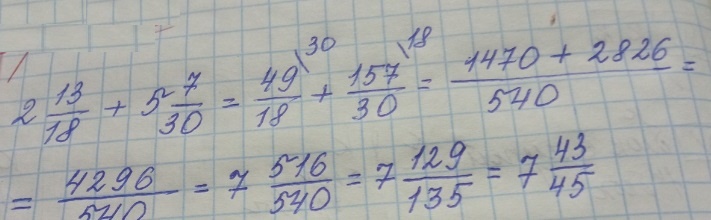 2 13/18 + 5 7/30 = 49/18 \30 + 157/30 \18 = 1470 + 2826/540 =
= 4296/540 = 7 516/540 = 7 129/135 = 7 43/45